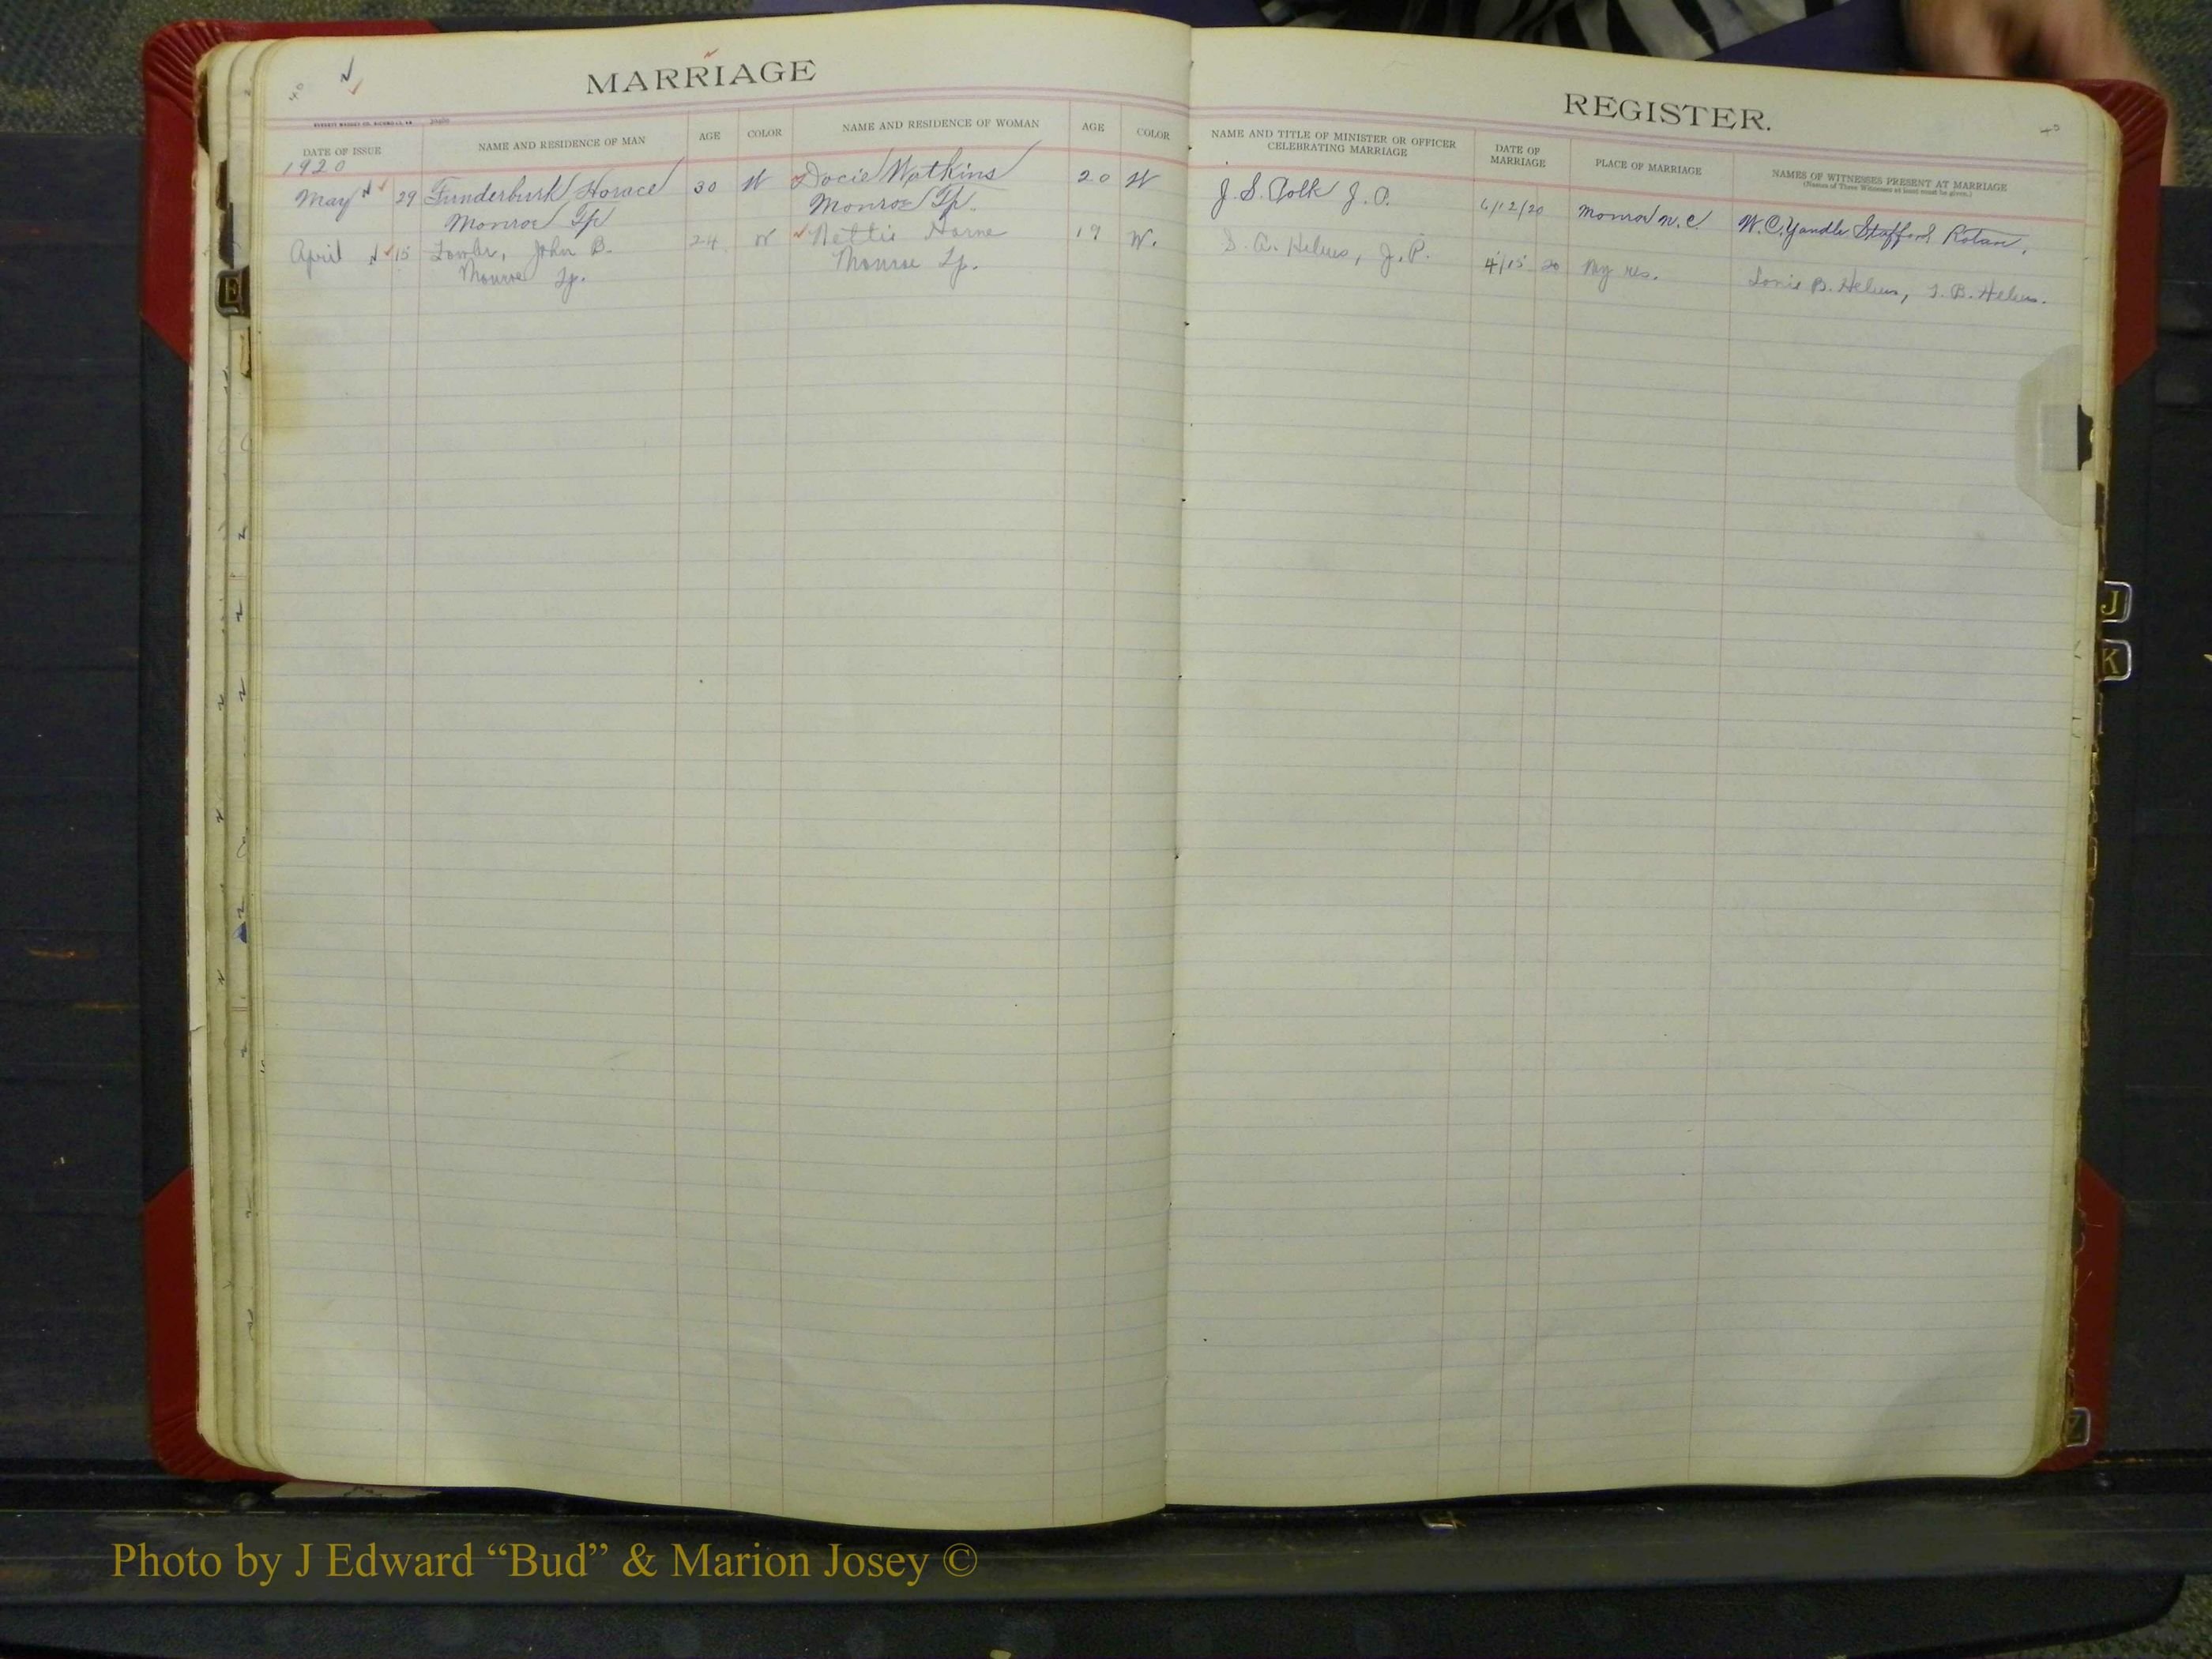 MARRIAGE REGISTER.
40 40
EVERETT WADDEY CO. RICHMOND, VA
DATE OF ISSUE NAME AND RESIDENCE OF MAN AGE COLOR NAME AND RESIDENCE OF WOMAN AGE COLOR NAME AND TITLE OF MINISTER OR OFFICER CELEBRATING MARRIAGE DATE OF MARRIAGE PLACE OF MARRIAGE NAMES OF WITNESSES PRESENT AT MARRIAGE
(Names of Three Witnesses at least must be given.)
1920
May 29 Funderburk Horace 30 W Docie Watkins 20 W J. S. Polk J. P. 6/12/20 Monroe N.C. W. C. Yandle Stafford Rotan,
Monroe Tp Monroe Tp.
April 15 John B. 24 W Nettie Horne 19 W. S. A. Helms, J. P. 4/15 20 My res. B. Helms, B. Helms.
Monroe Tp. Monroe Tp.
E
J
K
Z
Photo by J Edward “Bud” & Marion Josey ©